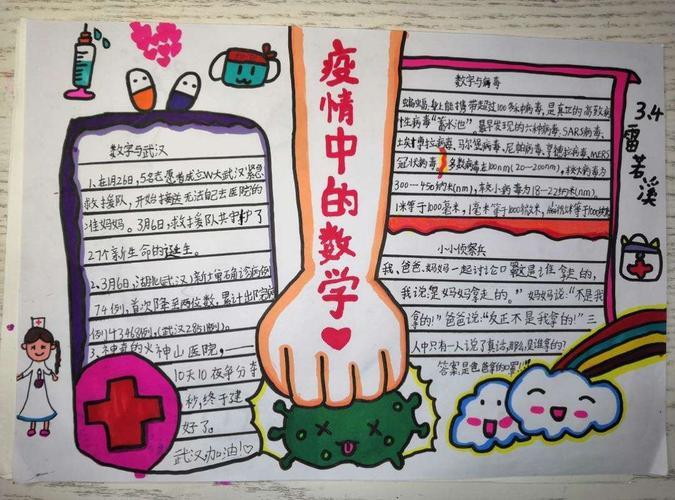 疫情中的数学
数字与武汉
1.在1月26日,5名志愿者成立W大武汉紧急
救援队,开始接送无法自己去医院的
准妈妈。3月6日,救援队共守护了
27个新生命的诞生。
2.3月6日,湖北武汉新增确诊病例
74例,首次降至两位数,累计出院病
例
3.神奇的火神山医院,——
10天10夜争分夺
秒,终于建
好了。
武汉加油!
数字与病毒
蝙蝠,身上能携带超过100多种病毒,是真正的高致病
性病毒“蓄水池”。最早发现的六种病毒,SARS病毒、
埃博拉病毒、马尔堡病毒、尼帕病毒、亨德拉病毒、MERS
冠状病毒,多数病毒在100nm(20~200nm),较大病毒为
300—450纳米(nm),较小病毒为18—22纳米(nm),
1米等于1000毫米,1毫米等于1000微米,1微米等于1000纳米
小小侦察兵
我、爸爸、妈妈一起讨论口罩这是谁拿走的,
我说是妈妈拿走的。”妈妈说:“不是我
拿的!”爸爸说:“反正不是我拿的!”三
人中只有一人说了真话,那么,是谁拿的?
答案:是爸爸拿的口罩!
3.4
雷若溪